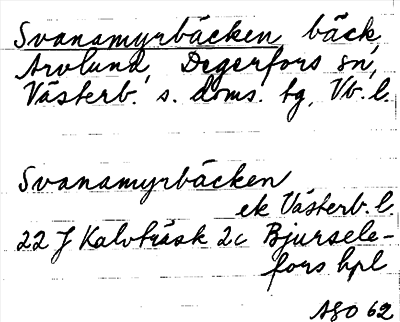 Svanamyrbäcken bäck,
Arvlund, Degerfors sn,
Västerb. s. doms. tg, Vb. l.
Svanamyrbäcken
ek Västerb. l.
22 J Kalvträsk 2c Bjursele-
fors hpl
ASO 62